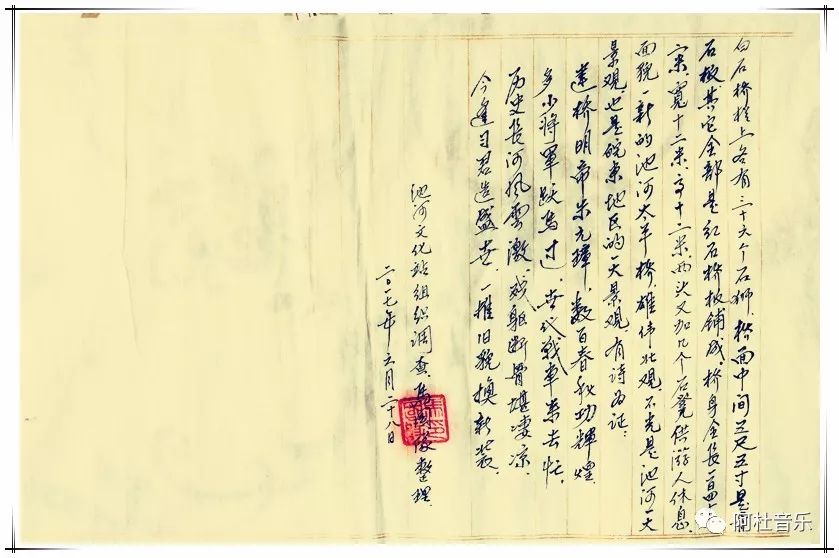 白石桥栏上各有三十六个石狮,桥面中间五尺五寸是白
石板其它全部是红石桥板铺成,桥身全长一百四十
六米,宽十二米,高十二米,两头又加几个石凳供游人休息
面貌一新的池河太平桥,雄伟壮观,不光是池河一大
景观,也是皖东地区的一大景观,有诗为证:
建桥明帝朱元璋,数百春秋功辉煌
多少将军跃马过,世代战车来去忙,
历史长河风云激,残躯断骨堪凄凉,
今逢习君造盛世,一摧旧貌换新装。
池河文化站组织调查,整理
二〇一七年六月二十八日
阿杜音乐